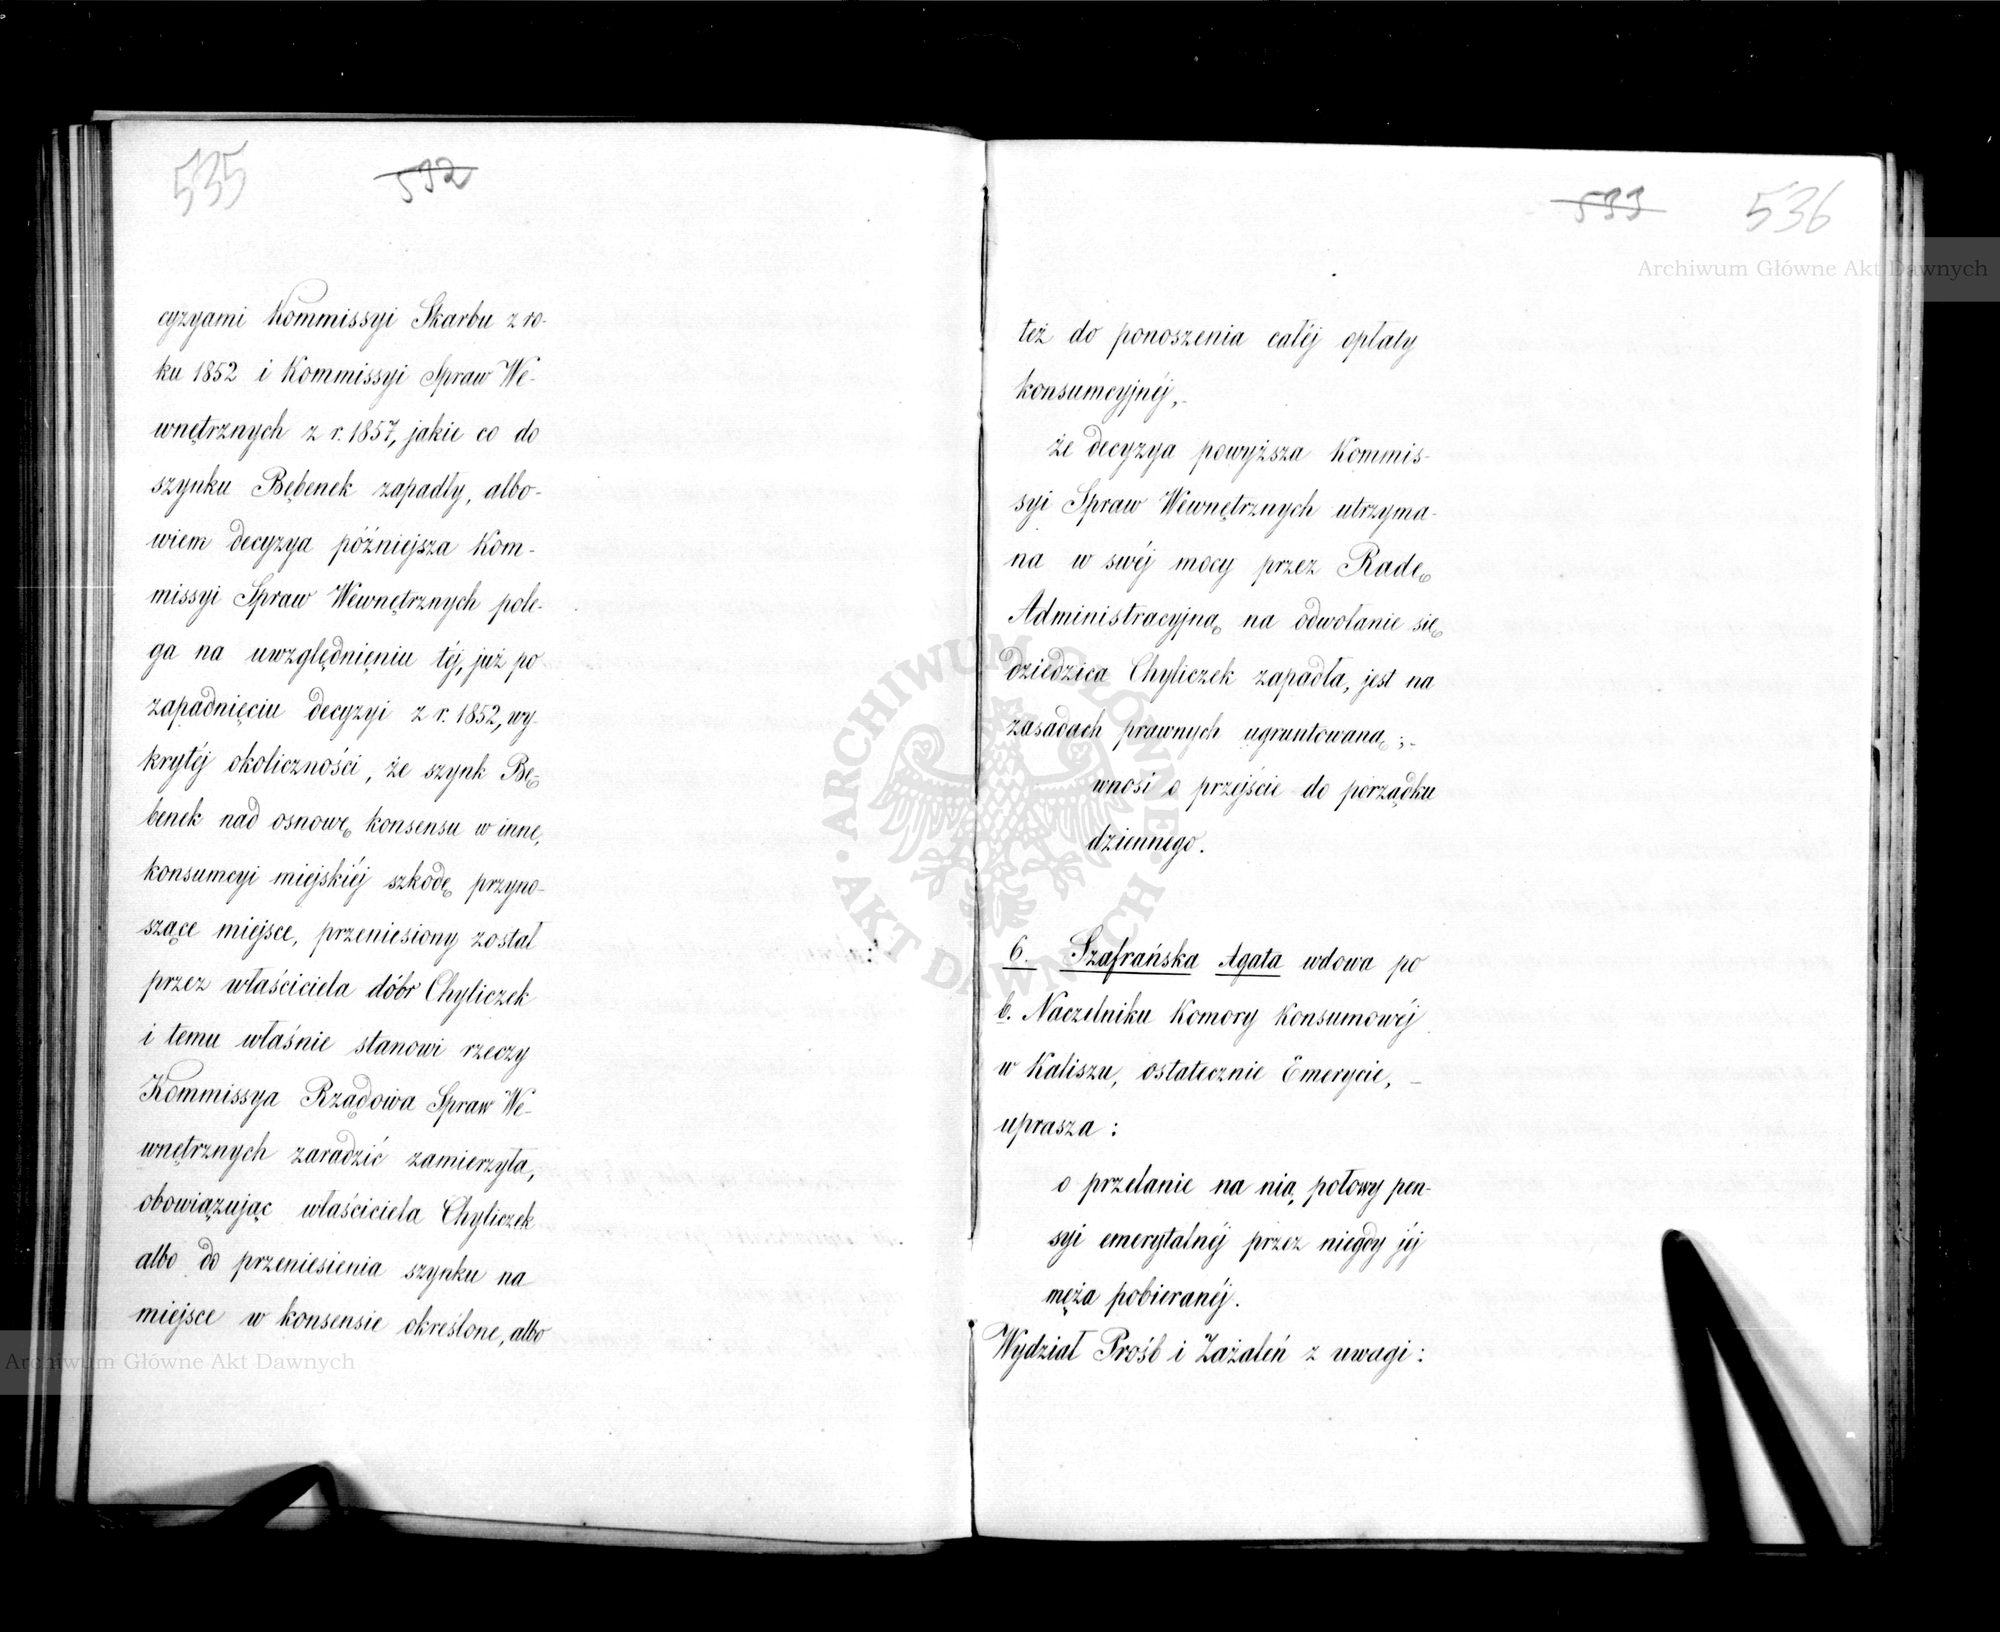 535 532
cyzyami Kommissyi Skarbu z ro-
ku 1852 i Kommissyi Spraw We-
wnętrznych z r. 1857, jakie co do
szynku Bębenek zapadły, albo-
wiem decyzya późniejsza Kom-
missyi Spraw Wewnętrznych pole-
ga na uwzględnięniu téj, już po
zapadnięciu decyzyi z r. 1852, wy-
krytéj okoliczności, że szynk Bę-
benek nad osnowę konsensu w inne,
konsumcyi miejskiéj szkodę przyno-
szące miejsce, przeniesiony został
przez właściciela dóbr Chyliczek
i temu właśnie stanowi rzeczy
Kommissya Rządowa Spraw We-
wnętrznych zaradzić zamierzyła,
obowiązując właściciela Chyliczek
albo do przeniesienia szynku na
miejsce w konsensie określone, albo
Archiwum Główne Akt Dawnych
533 536
Archiwum Główne Akt Dawnych
też do ponoszenia całéj opłaty
konsumcyjnéj,-
że decyzya powyższa Kommis-
syi Spraw Wewnętrznych utrzyma-
na w swéj mocy przez Radę
Administracyjną na odwołanie się
dziedzica Chyliczek zapadła, jest na
zasadach prawnych ugruntowaną;-
wnosi o przejście do porządku
dziennego.
6. Szafrańska Agata wdowa po
b. Naczelniku Komory Konsumowéj
w Kaliszu, ostatecznie Emerycie, -
uprasza:
o przelanie na nią połowy pen-
syi emerytalnéj przez niegdy jéj
męża pobieranéj.
Wydział Próśb i Zażaleń z uwagi:
ARCHIWUM GŁÓWNE
AKT DAWNYCH